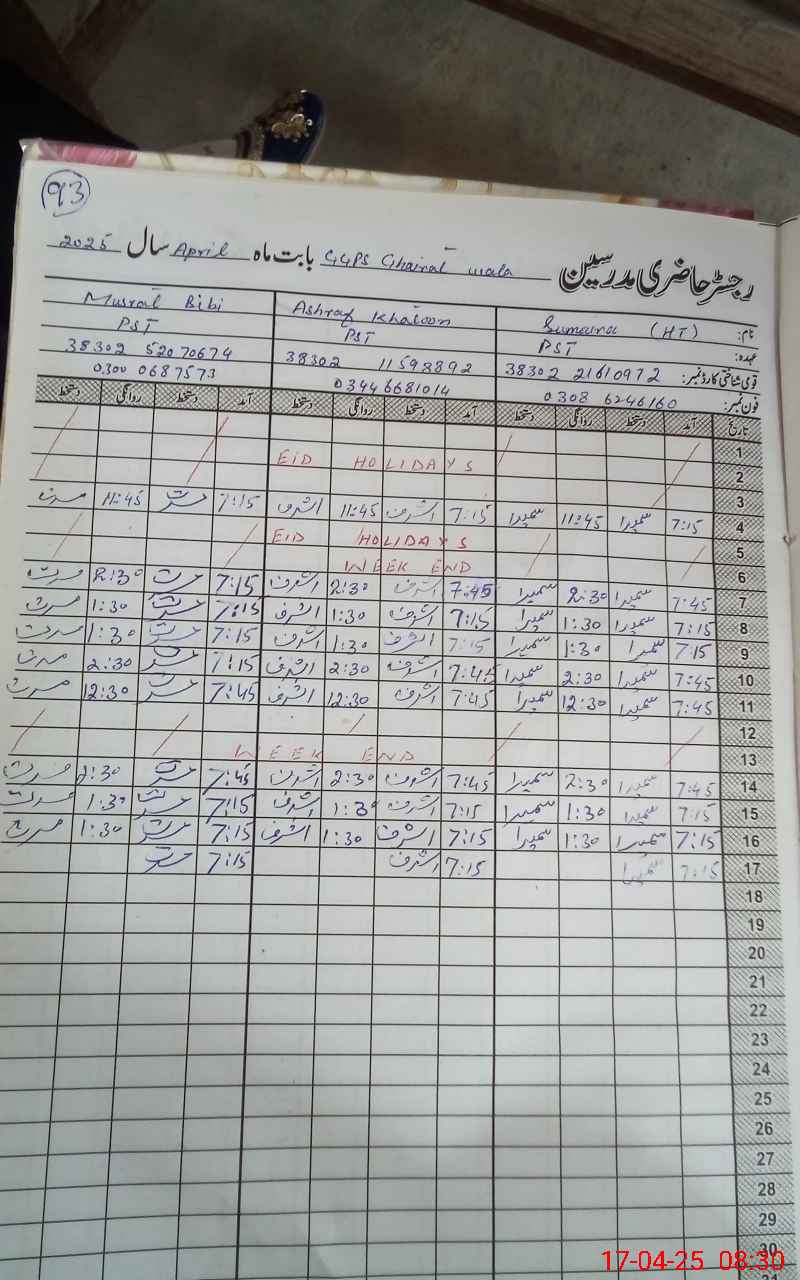 93
رجسٹر حاضری مدرسین GGPS Ghairat wala بابت ماہ April سال 2025
نام: Sumaira (HT) Ashraf Khatoon Musrat Bibi
عہدہ: PST PST PST
قومی شناختی کارڈ نمبر: 38302 2161097 2 38302 1159889 2 38302 5207067 4
فون نمبر: 0308 6246160 0344 6681014 0300 0687573
تاریخ آمد دستخط روانگی دستخط آمد دستخط روانگی دستخط آمد دستخط روانگی دستخط
1
2 EID HOLIDAYS
3
4 7:15 سمیرا 11:45 سمیرا 7:15 اشرف 11:45 اشرف 7:15 مسرت 11:45 مسرت
5 EID HOLIDAYS
6 WEEK END
7 7:45 سمیرا 2:30 سمیرا 7:45 اشرف 2:30 اشرف 7:15 مسرت 2:30 مسرت
8 7:15 سمیرا 1:30 سمیرا 7:15 اشرف 1:30 اشرف 7:15 مسرت 1:30 مسرت
9 7:15 سمیرا 1:30 سمیرا 7:15 اشرف 1:30 اشرف 7:15 مسرت 1:30 مسرت
10 7:45 سمیرا 2:30 سمیرا 7:45 اشرف 2:30 اشرف 7:15 مسرت 2:30 مسرت
11 7:45 سمیرا 12:30 سمیرا 7:45 اشرف 12:30 اشرف 7:45 مسرت 12:30 مسرت
12
13 WEEK END
14 7:45 سمیرا 2:30 سمیرا 7:45 اشرف 2:30 اشرف 7:45 مسرت 2:30 مسرت
15 7:15 سمیرا 1:30 سمیرا 7:15 اشرف 1:30 اشرف 7:15 مسرت 1:30 مسرت
16 7:15 سمیرا 1:30 سمیرا 7:15 اشرف 1:30 اشرف 7:15 مسرت 1:30 مسرت
17 7:15 سمیرا 7:15 اشرف 7:15 مسرت
18
19
20
21
22
23
24
25
26
27
28
29
30
17-04-25 08:30